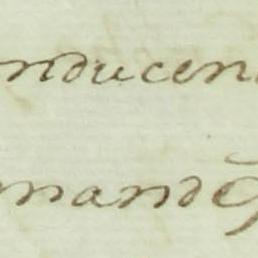 nducen
mando